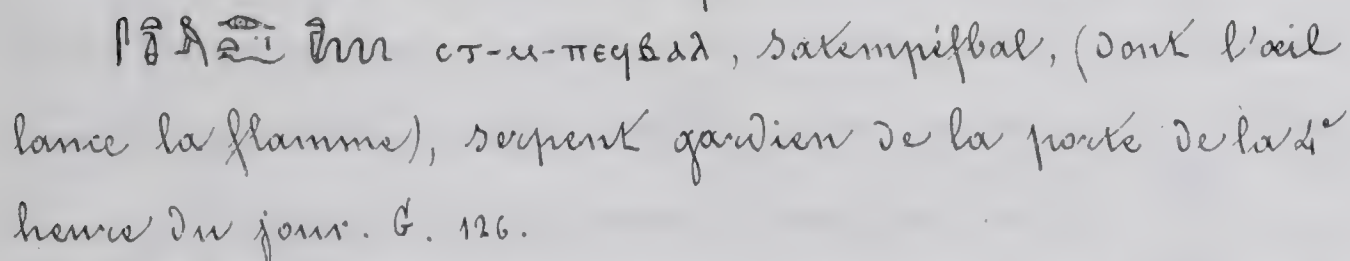 ст-м-печвал, Satempéfbal, (dont l'œil
lance la flamme), serpent gardien de la porte de la 4e
heure du jour. G. 126.